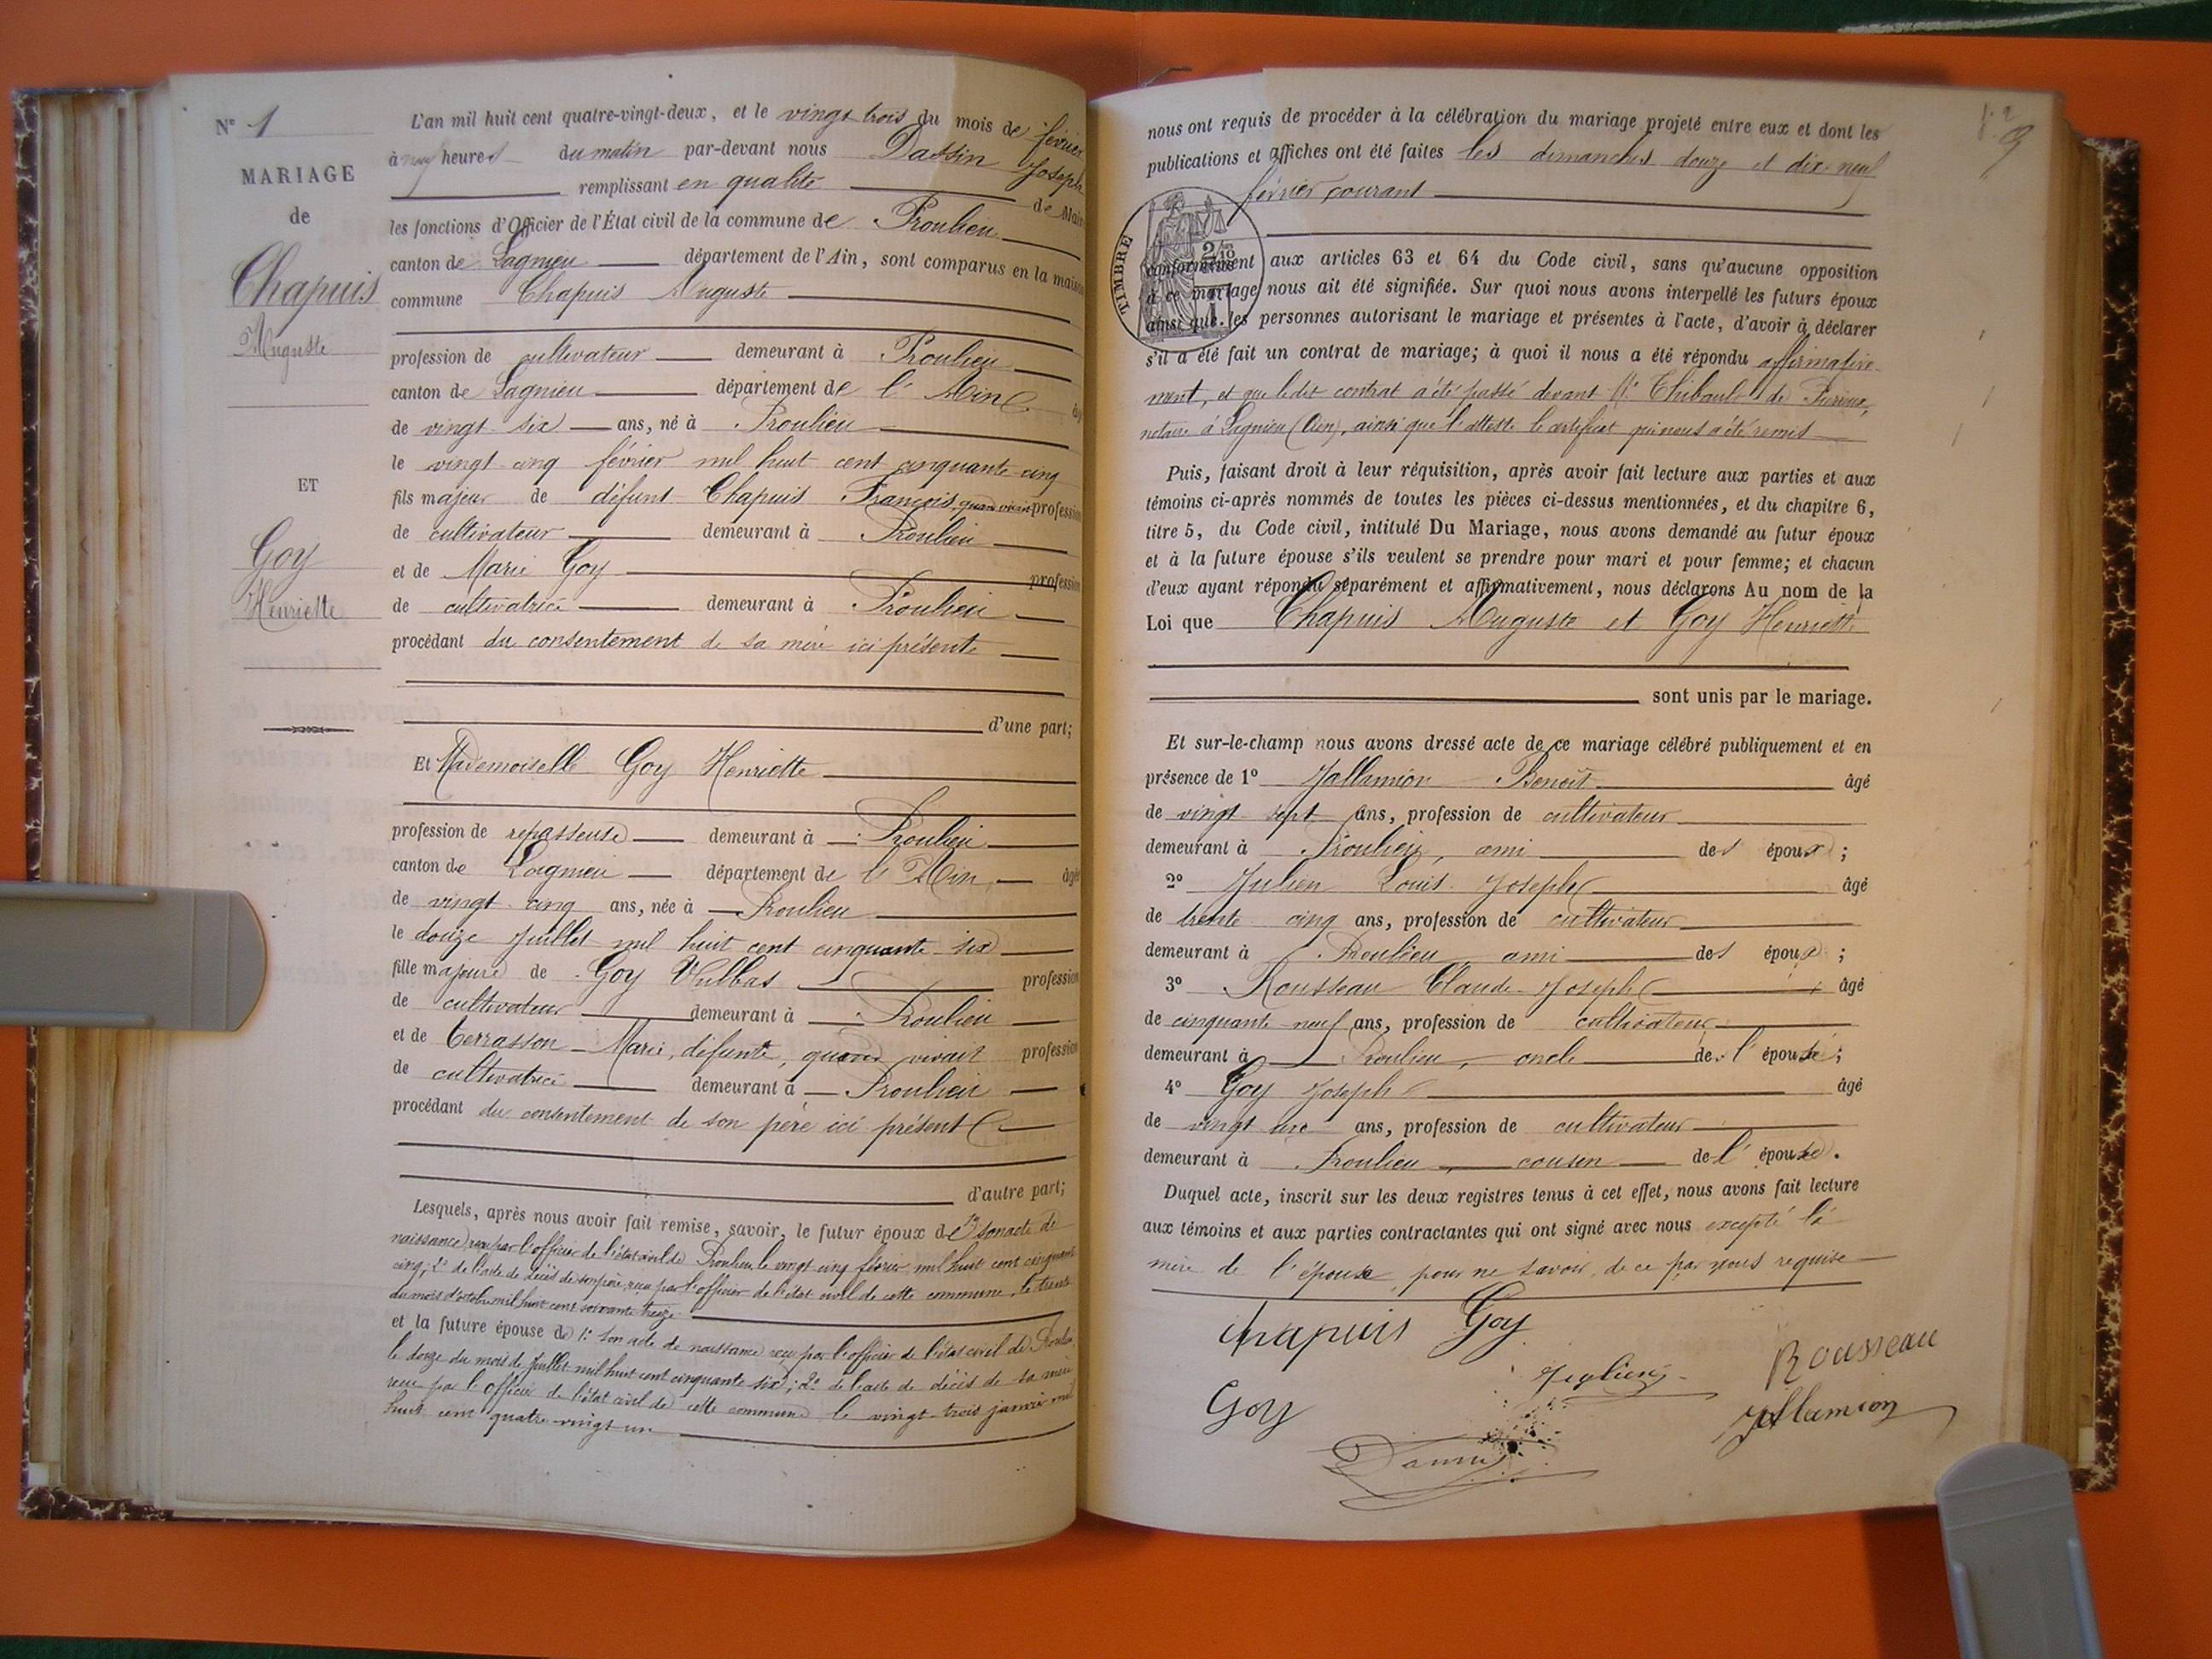 N° 1
MARIAGE
de
Chapuis
Auguste
ET
Goy
Henriette
L'an mil huit cent quatre-vingt-deux, et le vingt trois du mois de février
à neuf heures du matin par-devant nous Dassin Joseph
remplissant en qualité de Maire
les fonctions d'Officier de l'État civil de la commune de Proulieu
canton de Lagnieu département de l'Ain, sont comparus en la maison
commune Chapuis Auguste
profession de cultivateur demeurant à Proulieu
canton de Lagnieu département de l'Ain âgé
de vingt-six ans, né à Proulieu
le vingt-cinq février mil huit cent cinquante-cinq
fils majeur de défunt Chapuis François, quand vivait profession
de cultivateur demeurant à Proulieu
et de Marie Goy profession
de cultivatrice demeurant à Proulieu
procédant du consentement de sa mère ici présente
d'une part;
Et Mademoiselle Goy Henriette
profession de repasseuse demeurant à Proulieu
canton de Lagnieu département de l'Ain âgée
de vingt-cinq ans, née à Proulieu
le douze Juillet mil huit cent cinquante-six
fille majeure de Goy Vulbas profession
de cultivateur demeurant à Proulieu
et de Terrasson Marie, défunte, quand vivait profession
de cultivatrice demeurant à Proulieu
procédant du consentement de son père ici présent
d'autre part;
Lesquels, après nous avoir fait remise, savoir, le futur époux de 1° son acte de
naissance reçu par l'officier de l'état civil de Proulieu le vingt-cinq février mil huit cent cinquante
cinq; 2° de l'acte de décès de son père reçu par l'officier de l'état civil de cette commune, le trente
du mois d'octobre mil huit cent soixante treize
et la future épouse de 1° son acte de naissance reçu par l'officier de l'état civil de Proulieu
le douze du mois de Juillet mil huit cent cinquante six; 2° de l'acte de décès de sa mère
reçu par l'officier de l'état civil de cette commune le vingt-trois janvier mil
huit cent quatre-vingt-un
nous ont requis de procéder à la célébration du mariage projeté entre eux et dont les
publications et affiches ont été faites les dimanches douze et dix-neuf
février courant
TIMBRE
conformément aux articles 63 et 64 du Code civil, sans qu'aucune opposition
à ce mariage nous ait été signifiée. Sur quoi nous avons interpellé les futurs époux
ainsi que les personnes autorisant le mariage et présentes à l'acte, d'avoir à déclarer
s'il a été fait un contrat de mariage; à quoi il nous a été répondu affirmative-
ment, et que ledit contrat a été passé devant Me Thibault de
notaire à Lagnieu (Ain), ainsi que l'atteste le certificat qui nous a été remis
Puis, faisant droit à leur réquisition, après avoir fait lecture aux parties et aux
témoins ci-après nommés de toutes les pièces ci-dessus mentionnées, et du chapitre 6,
titre 5, du Code civil, intitulé Du Mariage, nous avons demandé au futur époux
et à la future épouse s'ils veulent se prendre pour mari et pour femme; et chacun
d'eux ayant répondu séparément et affirmativement, nous déclarons Au nom de la
Loi que Chapuis Auguste et Goy Henriette
sont unis par le mariage.
Et sur-le-champ nous avons dressé acte de ce mariage célébré publiquement et en
présence de 1° Jallamion Benoit âgé
de vingt-sept ans, profession de cultivateur
demeurant à Proulieu, ami des époux;
2° Julien Louis Joseph âgé
de trente-cinq ans, profession de cultivateur
demeurant à Proulieu ami des époux;
3° Rousseau Claude-Joseph âgé
de cinquante-neuf ans, profession de cultivateur
demeurant à Proulieu, oncle de l'épouse;
4° Goy Joseph âgé
de vingt un ans, profession de cultivateur
demeurant à Proulieu, cousin de l'épouse.
Duquel acte, inscrit sur les deux registres tenus à cet effet, nous avons fait lecture
aux témoins et aux parties contractantes qui ont signé avec nous excepté la
mère de l'épouse, pour ne savoir, de ce par nous requise
Chapuis Goy
Rousseau
Goy
Jallamion